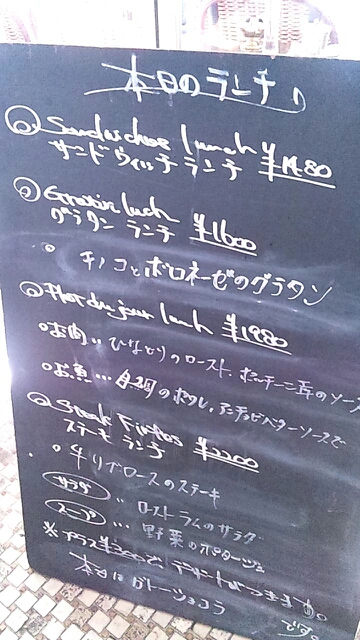 本日のランチ
◎ Sandwiches lunch
サンドウィッチ ランチ ¥1480
◎ Gratin lunch
グラタン ランチ ¥1600
。キノコとボロネーゼのグラタン
◎ Plat du jour lunch ¥1980
。お肉‥ ひな鳥のロースト、ポルチーニ茸のソース
。お魚… 真鯛のポワレ、アンチョビバターソースで
◎ Steak Frites
ステーキ ランチ ¥2200
。牛リブロースのステーキ
サラダ 〃 ローストラムのサラダ
スープ … 野菜のポタージュ
※ プラス¥300で、デザートがつきます。
本日はガトーショコラ です。